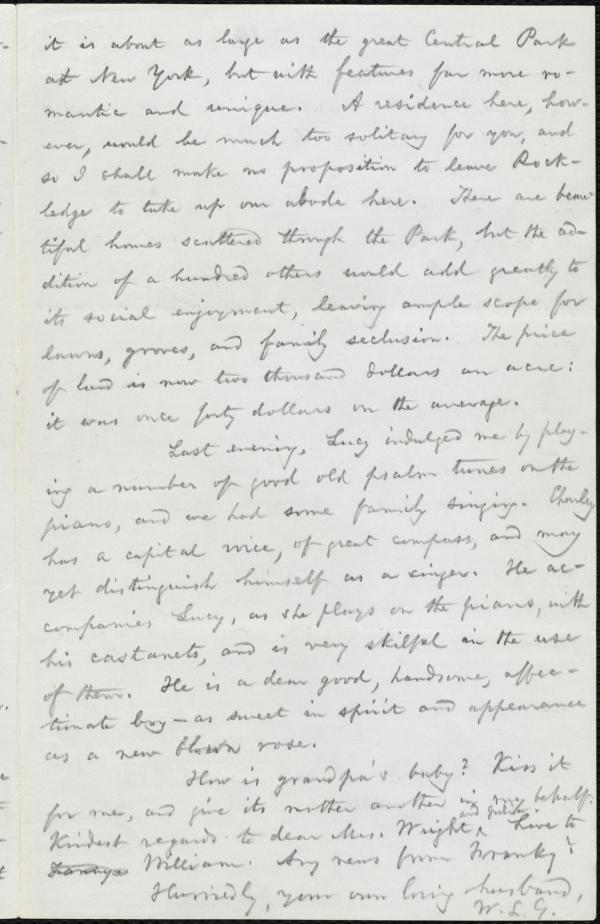 it is about as large as the great Central Park
at New York, but with features far more ro-
mantic and unique. A residence here, how-
ever, would be much too solitary for you, and
so I shall make no proposition to leave Rock-
ledge to take up our abode here. There are beau
tiful homes scattered through the Park, but the ad-
dition of a hundred others would add greatly to
its social enjoyment, leaving ample scope for
lawns, groves, and family seclusion. The price
of land is now two thousand dollars an acre:
it was once forty dollars on the average.
Last evening, Lucy indulged me by play-
ing a number of good old psalm tunes on the
piano, and we had some family singing. Charley
has a capital voice, of great compass, and may
yet distinguish himself as a singer. He ac-
companies Lucy, as she plays on the piano, with
his castanets, and is very skilful in the use
of them. He is a dear good, handsome, affec-
tionate boy—as sweet in spirit and appearance
as a new blown rose.
How is grandpa's baby? Kiss it
for me, and give its mother another in my behalf.
Kindest regards to dear Mrs. Wright, Love to
William. Any news from Franky?
Hurriedly, your own loving husband,
W. L. G.